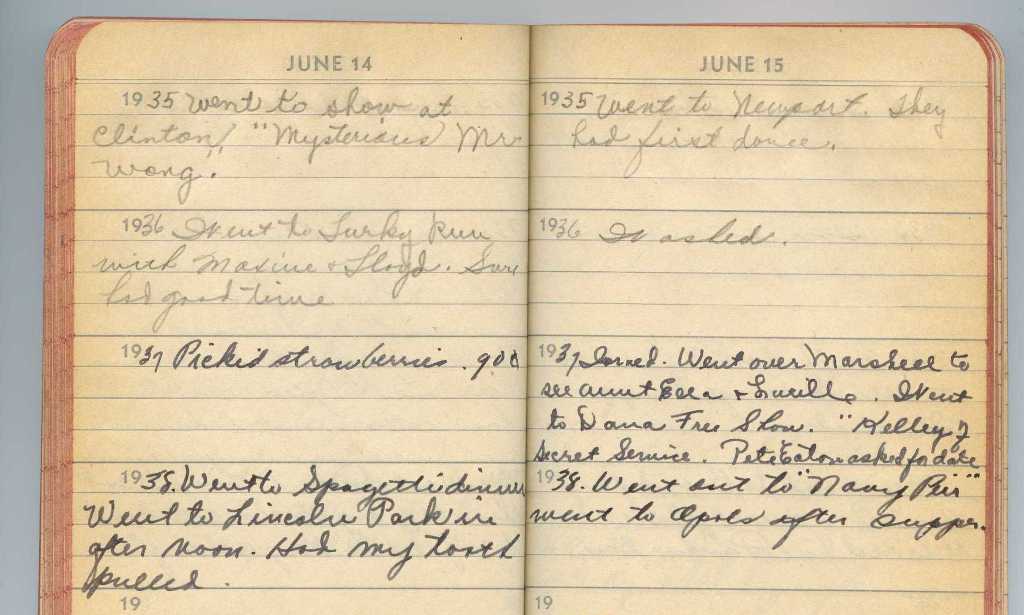 JUNE 14
1935 Went to show at
Clinton, "Mysterious Mr
Wong."
1936 Went to Turky Run
with Maxine & Lloyd. Sure
had good time
1937 Pickid strawberries. 900
1938. Went to Spagetti dinner
Went to Lincoln Park in
after noon. Had my tooth
pulled.
19
JUNE 15
1935 Went to Newport. They
had first dance.
1936 Washed.
1937 Ironed. Went over Marshall to
see aunt & Lucille. Went
to Dana Free Show. "Kelley of
Secret Service. Pete Eaton asked for date
1938. Went out to "Navy Peir"
went to Opals after supper.
19